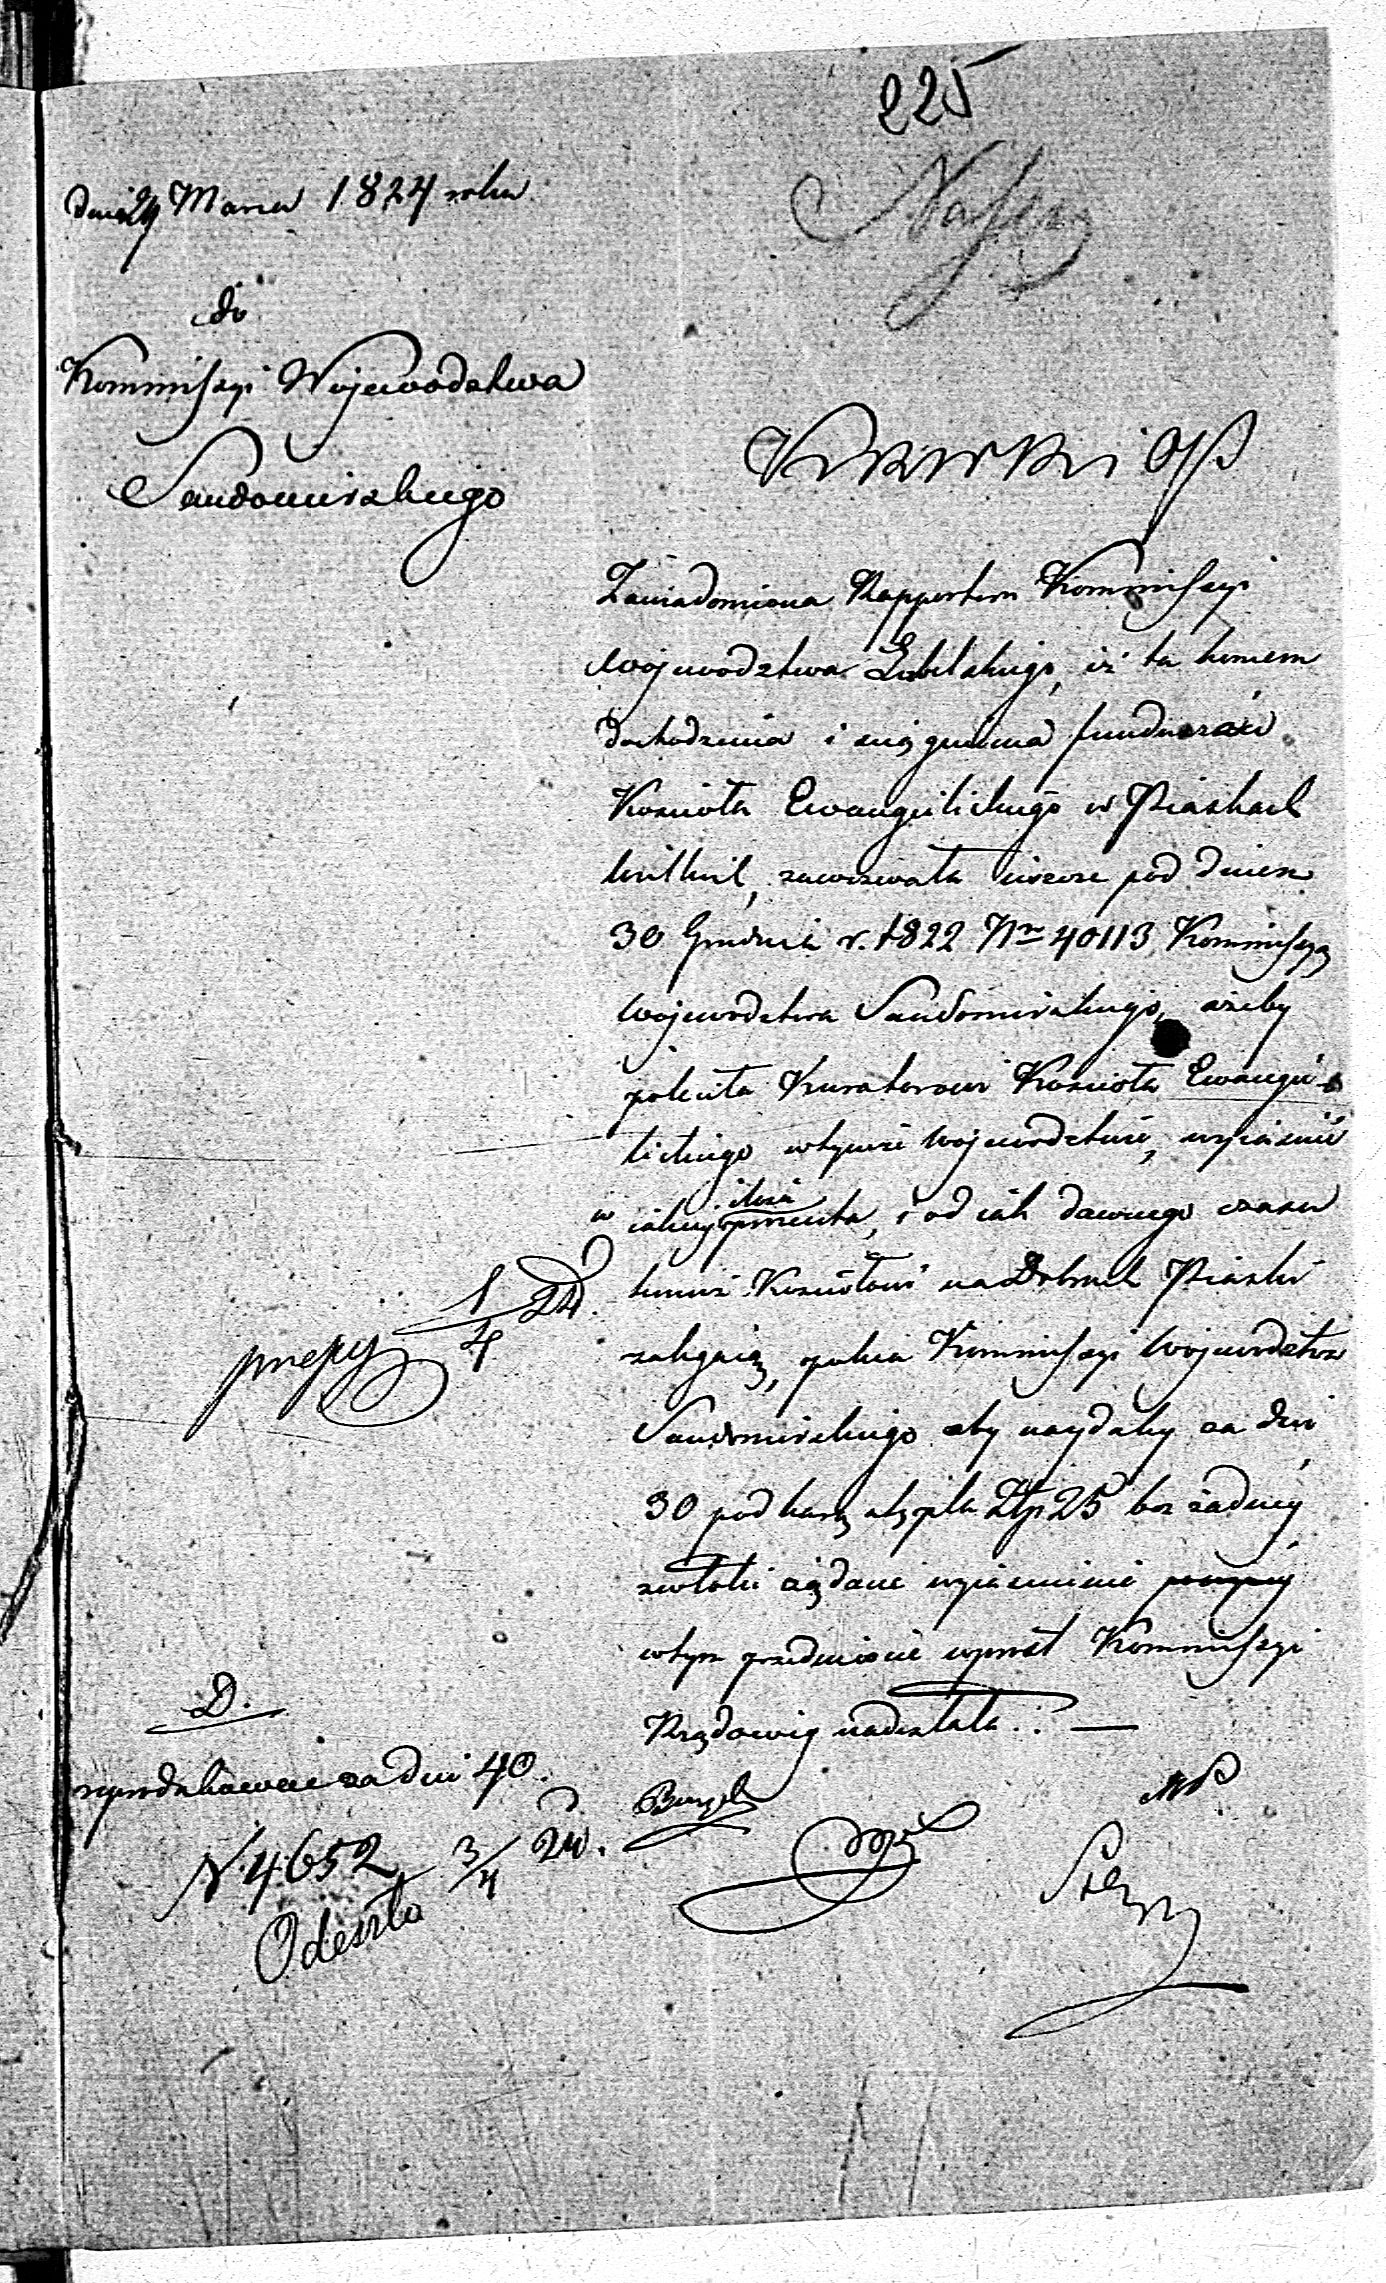 225
dnia 24 Marca 1824 roku
do
Kommissyi Województwa
Sandomirskiego
Zawiadomiona Rapportem Kommissyi
Województwa Lubelskiego, iż ta końcem
dochodzenia i osiągnienia funduszów
Kościoła Ewangelickiego w Piaskach
wielkich, zawezwała jeszcze pod dniem
30 Grudnia r. 1822 Nro 40113 Kommissyą
Województwa Sandomirskiego, ażeby
poleciła Kuratorowi Kościoła Ewangie-
lickiego w tymże Województwie, wyiaśnić
w iakiey ilości procenta, i od iak dawnego czasu
temuż Kościołowi na Dobrach Piaski
zalegaią, poleca Kommissyi Województwa
Sandomirskiego aby naydaley za dni
30 pod karą Złp 25 bez żadney
zwłoki żądane wyiaśnienie
w tym przedmiocie wprost Kommissyi
Rządowey nadesłała. —
1/4 24.
D.
za dni 40.
N. 4652 3/4 24.
Odeszło